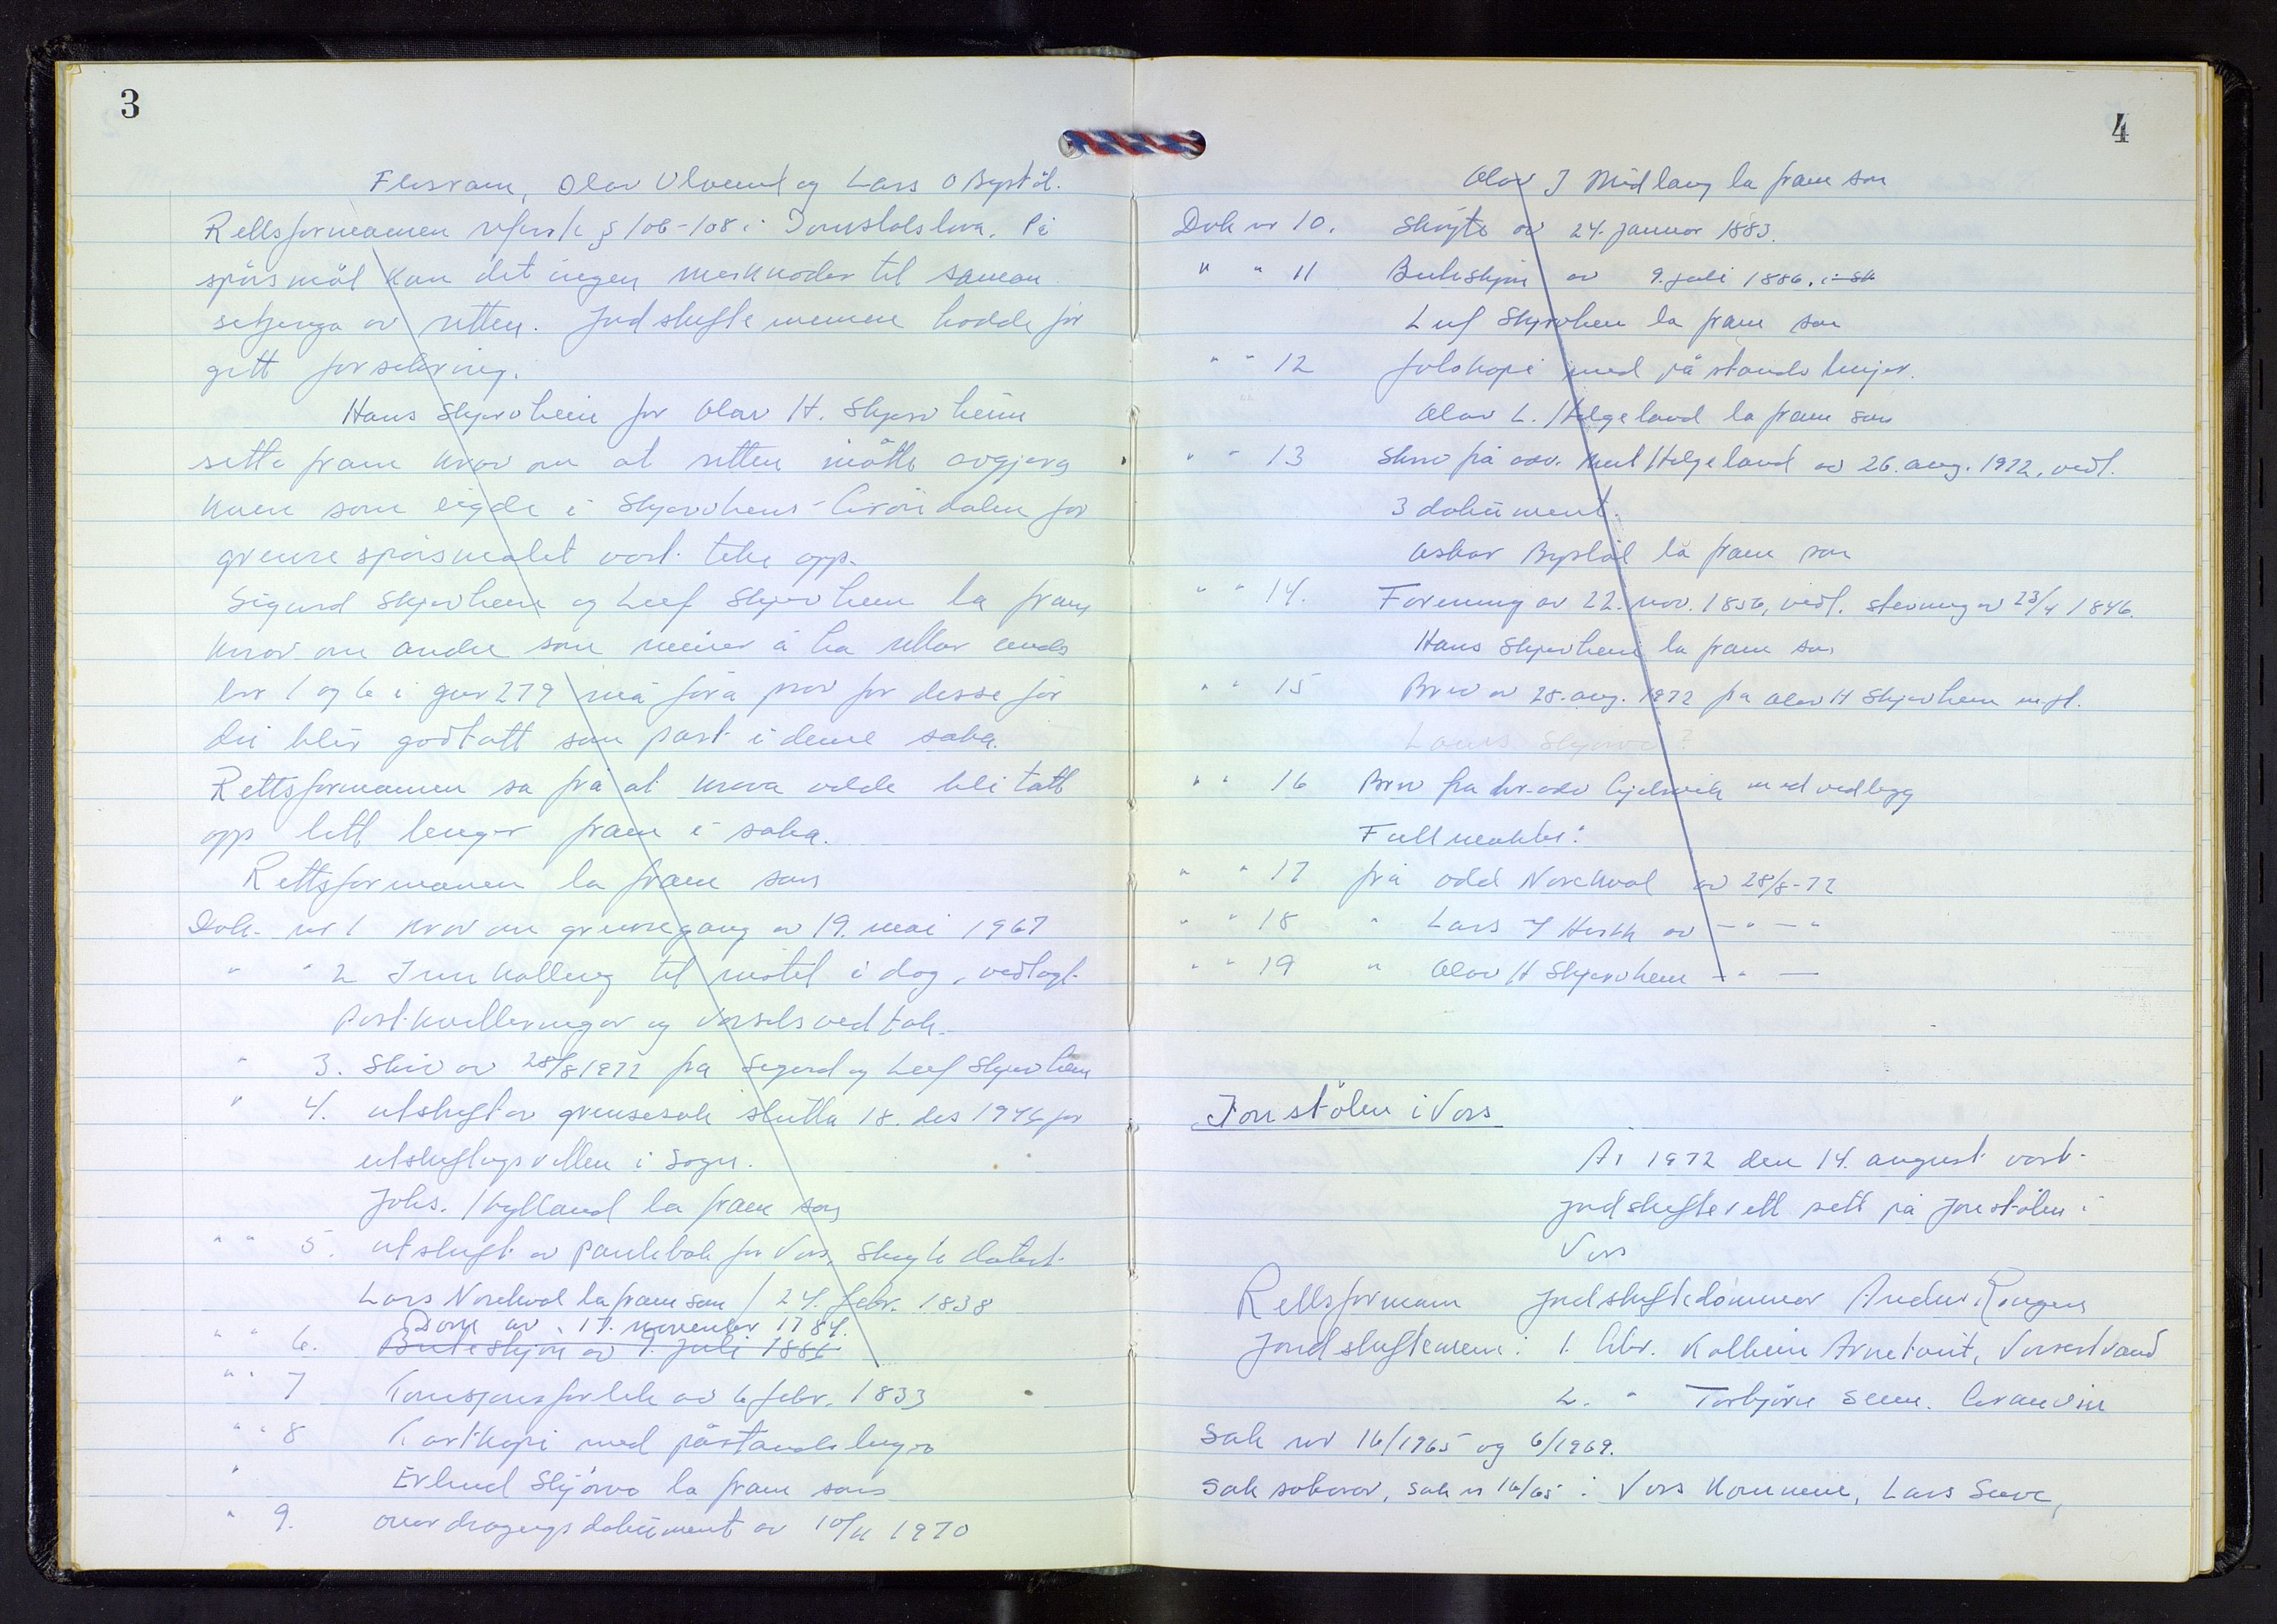 3
Flisram, Olav Ulvund og Lars O Bystöl.
Rettsformannen refererte § 106-108 i Domstolslova. På
spörsmål kom det ingen merknader til saman
setjinga av retten. Jordskiftemennene hadde för
gitt forsikring.
Hans Skjervheim for Olav H. Skjervheim
sette fram krav om at retten måtte avgjera
kven som eigde i Skjervheims-Gröndalen for
grense spörsmålet vart teke opp.
Sigurd Skjervheim og Leif Skjervheim la fram
krav om andre som meiner å ha rettar enn
bnr 1 og 6 i gnr 279 må föra prov for desse för
dei blir godtatt som part i denne saka.
Rettsformannen sa frå at krava ville bli tatt
opp litt lenger fram i saka.
Rettsformannen la fram som
Dok. nr 1 krav om grensegang av 19. mai 1967
" " 2 Innkalling til mötet i dag, vedlagt
Postkvitteringar og varsels vedtak.
" 3. Skriv av 28/8 1972 frå Sigurd og Leif Skjervheim
" 4. utskrift av grensesak slutta 18. des 1946 for
utskiftingsretten i Sogn.
Johs. Hylland la fram som
" " 5. utskrift av pantebok for Voss, Skøyte datert
Lars Norekval la fram som / 24. febr. 1838
Dom av 17. november 1784.
" " 6. Buteskjön av 9. juli 1886
" " 7 febr. 1833
" " 8 Kartkopi med påstandslinjer
" Erlend Skjörvo la fram som
" 9. overdragingsdokument av 10/11 1970
4
Olav J Midlang la fram som
Dok nr 10. Sköyte av 24. januar 1883.
" " 11 Buteskjön av 9. juli 1886. i sk
Leif Skjervheim la fram som
" " 12 fotokopi med påstands linjer.
Olav L. Helgeland la fram som
" " 13 Skriv frå adv. Knut Helgeland av 26. aug. 1972, vedl.
3 dokument.
Oskar Bystöl la fram som
" " 14. Forening av 22. nov. 1856, vedl. stevning av 23/4 1846.
Hans Skjervheim la fram som
" " 15 Brev av 28. aug. 1972 frå Olav H Skjervheim m.fl.
" " 16 Brev frå hr.adv Gjelsvik med vedlegg
Fullmakter:
" " 17 frå Odd Norekval av 28/8-72
" " 18 " Lars Herre av - " - "
" " 19 " Olav H Skjervheim - " -
Jonstölen i Voss
År 1972 den 14. august vart
jordskifterett sett på Jonstölen i
Voss
Rettsformann Jordskiftedommer Andur Ringen
Jordskiftemenn: 1. Gbr. Kolbein Arnetveit, Vossestrand
2. " Torbjörn Seim. Granvin
Sak nr 16/1965 og 6/1969.
Sak sökarar, sak nr 16/65: Voss Kommune, Lars Seeve,